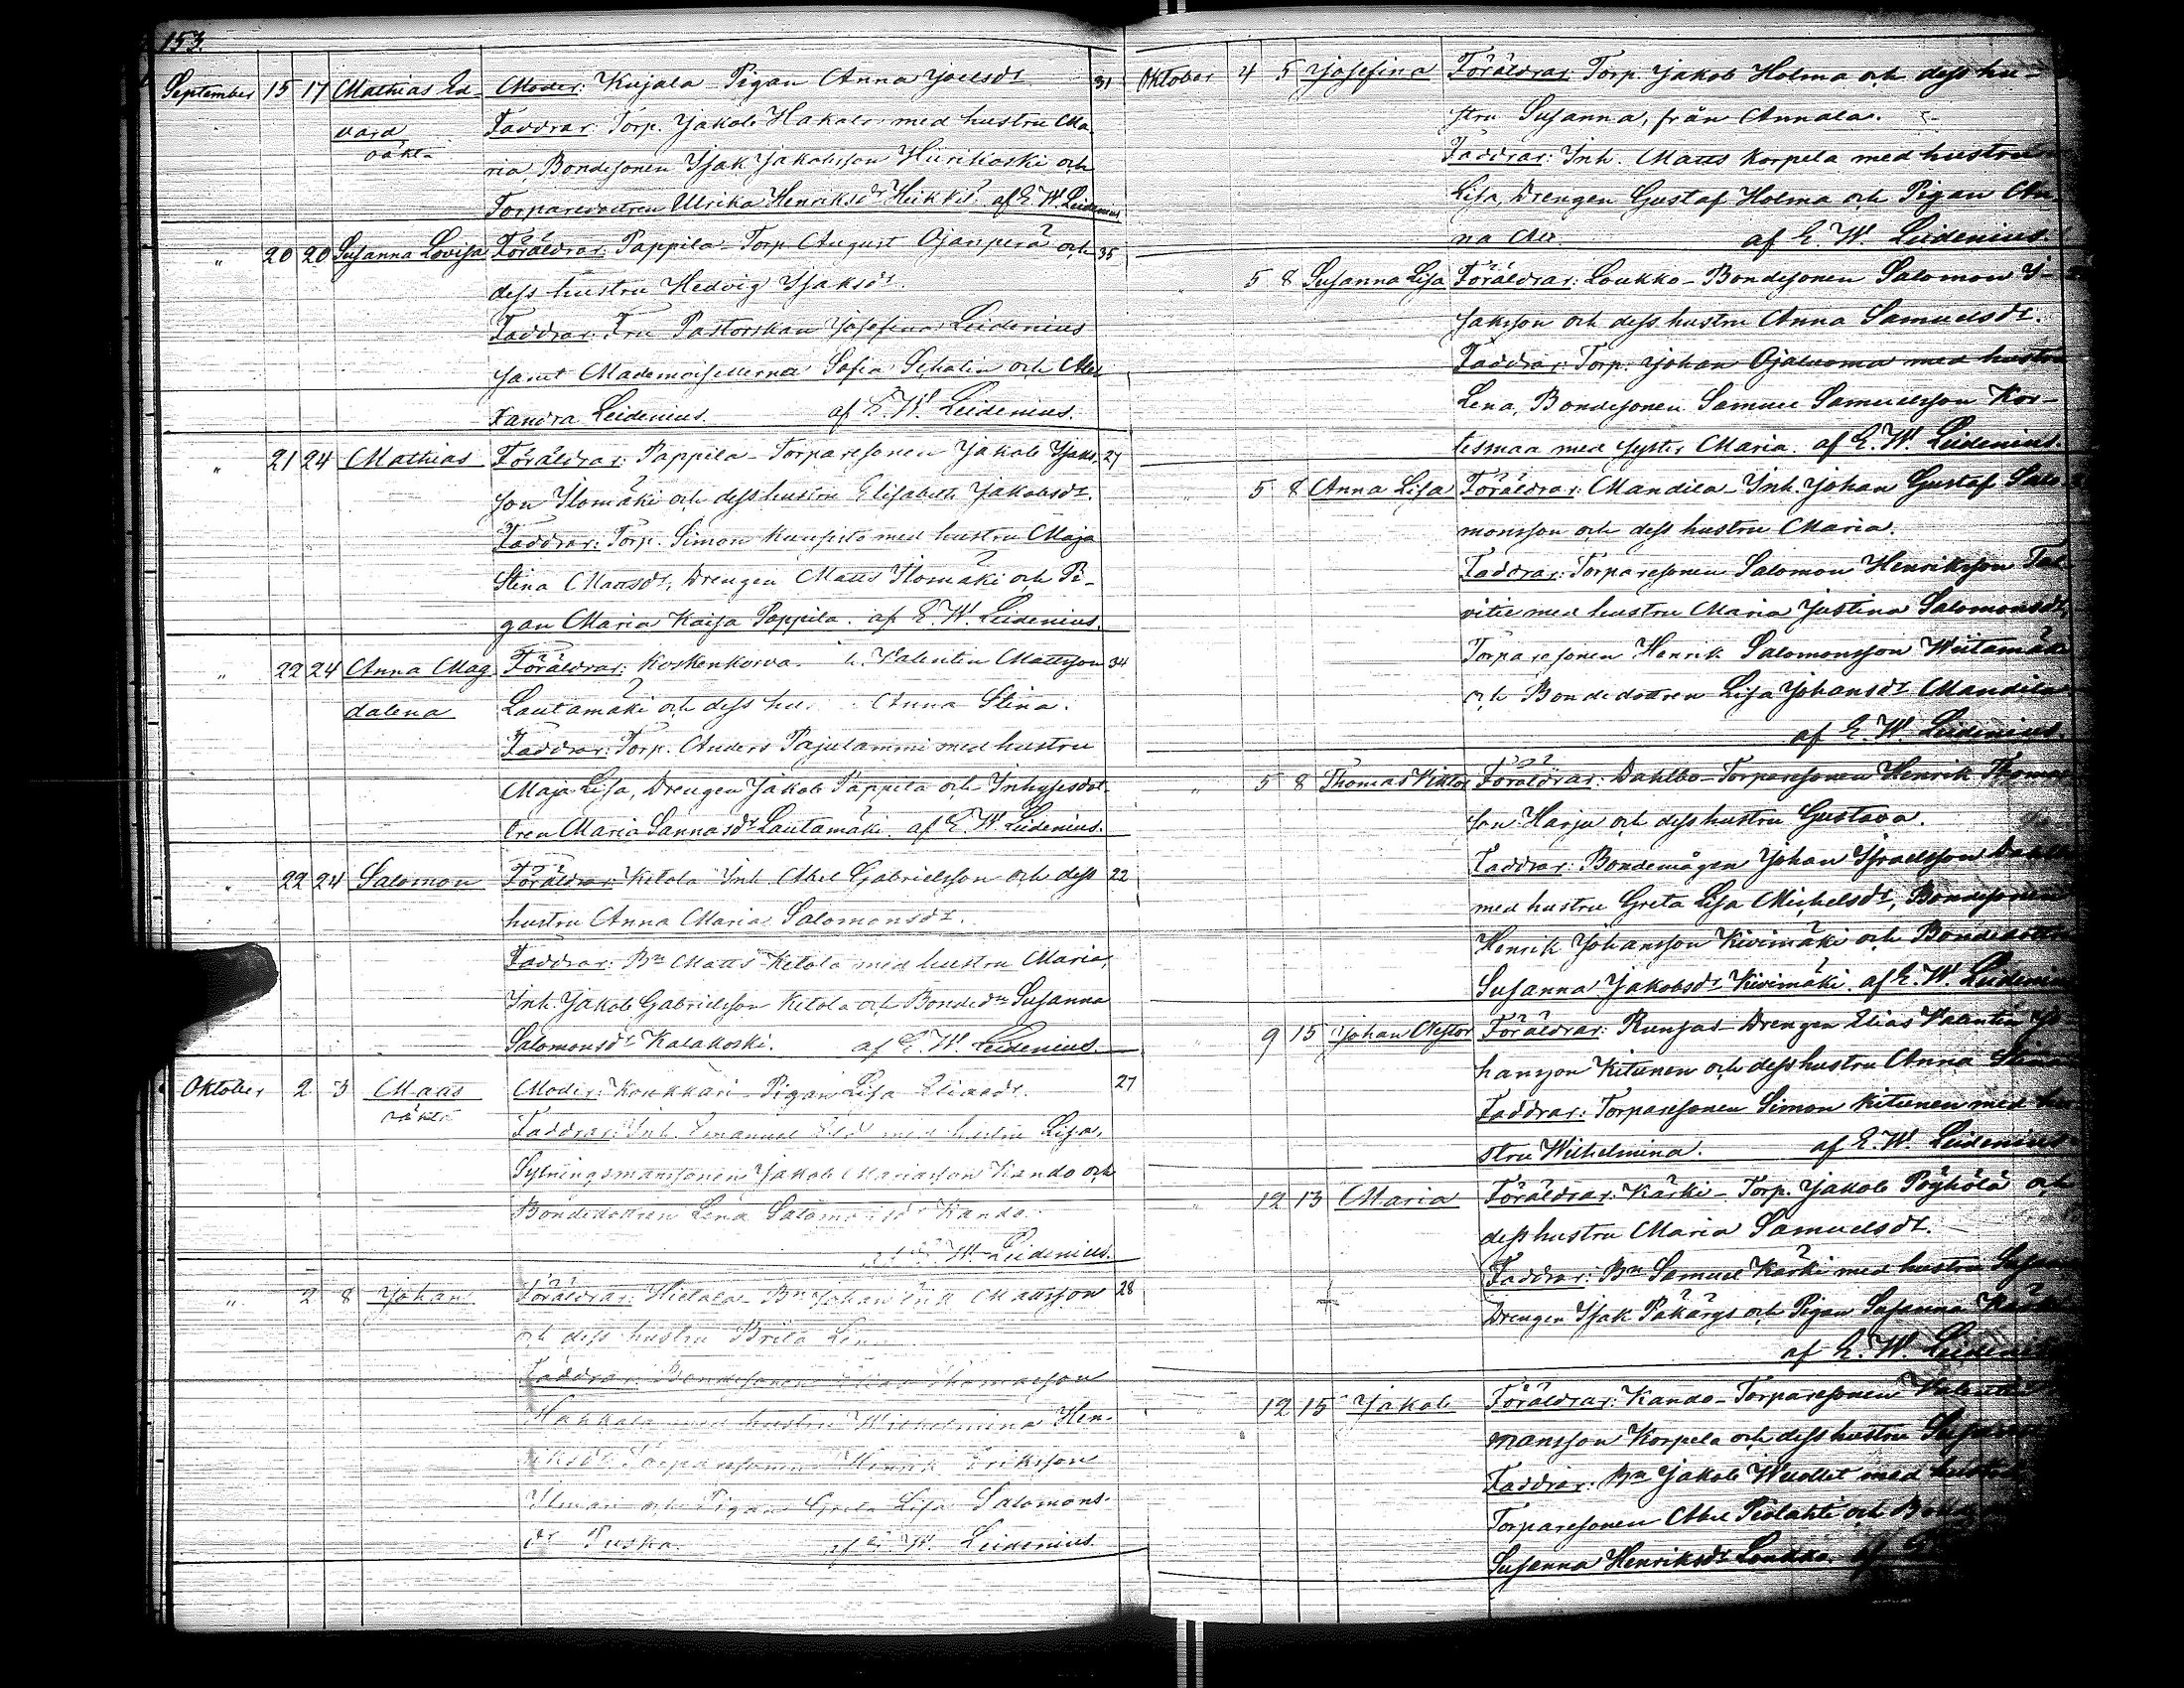 153.
September 15 17 Mathias Ed- Moder: Kujala Pigan Anna Joelsdr 31
vard Faddrar: Torp. Jakob Hakala med hustru Ma-
oäkta ria, Bondesonen Isak Jakobsson Hiirikoski och
Torparedottren Ulrika Henriksdr Heikkilä af E. W. Leidenius
" 20 20 Susanna Lovisa Föräldrar: Pappila Torp. August Ojanperä och 35
dess hustru Hedvig Isaksdr.
Faddrar: Fru Pastorskan Josefina Leidenius
samt Mademoisellerna Sofia Schalin och Alex
xandra Leidenius. af E. W. Leidenius.
" 21 24 Mathias Föräldrar: Pappila Torparesonen Jakob Jakobs- 27
son Ilomäki och dess hustru Elisabeth Jakobsdr.
Faddrar: Torp. Simon Kuusisto med hustru Maja
Stina Mattsdr, Drengen Matts Ilomäki och Pi-
gan Maria Kaisa Pappila. af E. W. Leidenius.
" 22 24 Anna Mag Föräldrar: Koskenkorva Valentin Mattsson 34
dalena Lautamäki och dess hu Anna Stina.
Faddrar: Torp. Anders Pajulammi med hustru
Maja Lisa, Drengen Jakob Pappila och Inhysesdot-
tren Maria Sannasdr Lautamäki. af E. W. Leidenius.
" 22 24 Salomon Föräldrar: Ketola Inh. Abel Gabrielsson och dess 22
hustru Anna Maria Salomonsdr.
Faddrar: Bn Matts Ketola med hustru Maria,
Inh. Jakob Gabrielsson Ketola och Bondedn Susanna
Salomonsdr Kalakoski. af E. W. Leidenius.
Oktober 2 3 Maas Moder: Koukkari Pigan Lisa Eliaedr. 27
oäkta Faddrar: Inh. Emanuel med hustru Lisa,
Sytningsmansonen Jakob Mariasson Kando och
Bondedottren Lena Salomonsdr Kando.
af E. W. Leidenius.
" 2 8 Johan Föräldrar: Hietala Bn Johan Erik Mattsson 28
och dess hustru Brita Lena
Faddrar: Bondesonen Elias Thomasson
Hakkola med hustru Wilhelmina Hen-
riksdr Torparesonen Henrik Eriksson
Ilmari och Pigan Greta Lisa Salomons-
dr Puska. af E. W. Leidenius.
Oktober 4 5 Josefina Föräldrar: Torp. Jakob Holma och dess hu-
stru Susanna, från Annala.
Faddrar: Inh. Matts Korpela med hustru
Lisa, Drengen Gustaf Holma och Pigan An-
na af E. W. Leidenius.
5 8 Susanna Lisa Föräldrar: Loukko-Bondesonen Salomon I-
saksson och dess hustru Anna Samuelsdr.
Faddrar: Torp. Johan Ojaluoma med hustru
Lena, Bondesonen Samuel Samuelsson Kor-
tesmaa med syster Maria. af E. W. Leidenius.
" 5 8 Anna Lisa Föräldrar: Mandila-Inh. Johan Gustaf Salo-
monsson och dess hustru Maria.
Faddrar: Torparesonen Salomon Henriksson Tal-
vitie med hustru Maria Justina Salomonsdr,
Torparesonen Henrik Salomonsson Wiitamäki
och Bondedottren Lisa Johansdr Mandila
af E. W. Leidenius.
" 5 8 Thomas Viktor Föräldrar: Dahlbo-Torparesonen Henrik Thomas-
son Harju och dess hustru Gustava.
Faddrar: Bondemågen Johan Israelsson Dahlbo
med hustru Greta Lisa Michelsdr, Bondesonen
Henrik Johansson Kivimäki och Bondedottren
Susanna Jakobsdr Kivimäki. af E. W. Leidenius
" 9 15 Johan Nestor Föräldrar: Runsas Drengen Elias Valentin Jo-
hansson Kitunen och dess hustru Anna
Faddrar: Torparesonen Simon Kitunen med hu-
stru Wilhelmina. af E. W. Leidenius
" 12 13 Maria Föräldrar: Kärki-Torp. Jakob Pöyhölä och
dess hustru Maria Samuelsdr.
Faddrar: Bn Samuel Kärki med hustru
Drengen Isak Pakärys och Pigan Susanna Kärki
af E. W. Leidenius
" 12 15 Jakob Föräldrar: Kando-Torparesonen Valentin
mansson Korpela och dess hustru
Faddrar: Bn Jakob Wuollet med hustru
Torparesonen Abel Peolahti och
Susanna Henriksdr Loukko. af